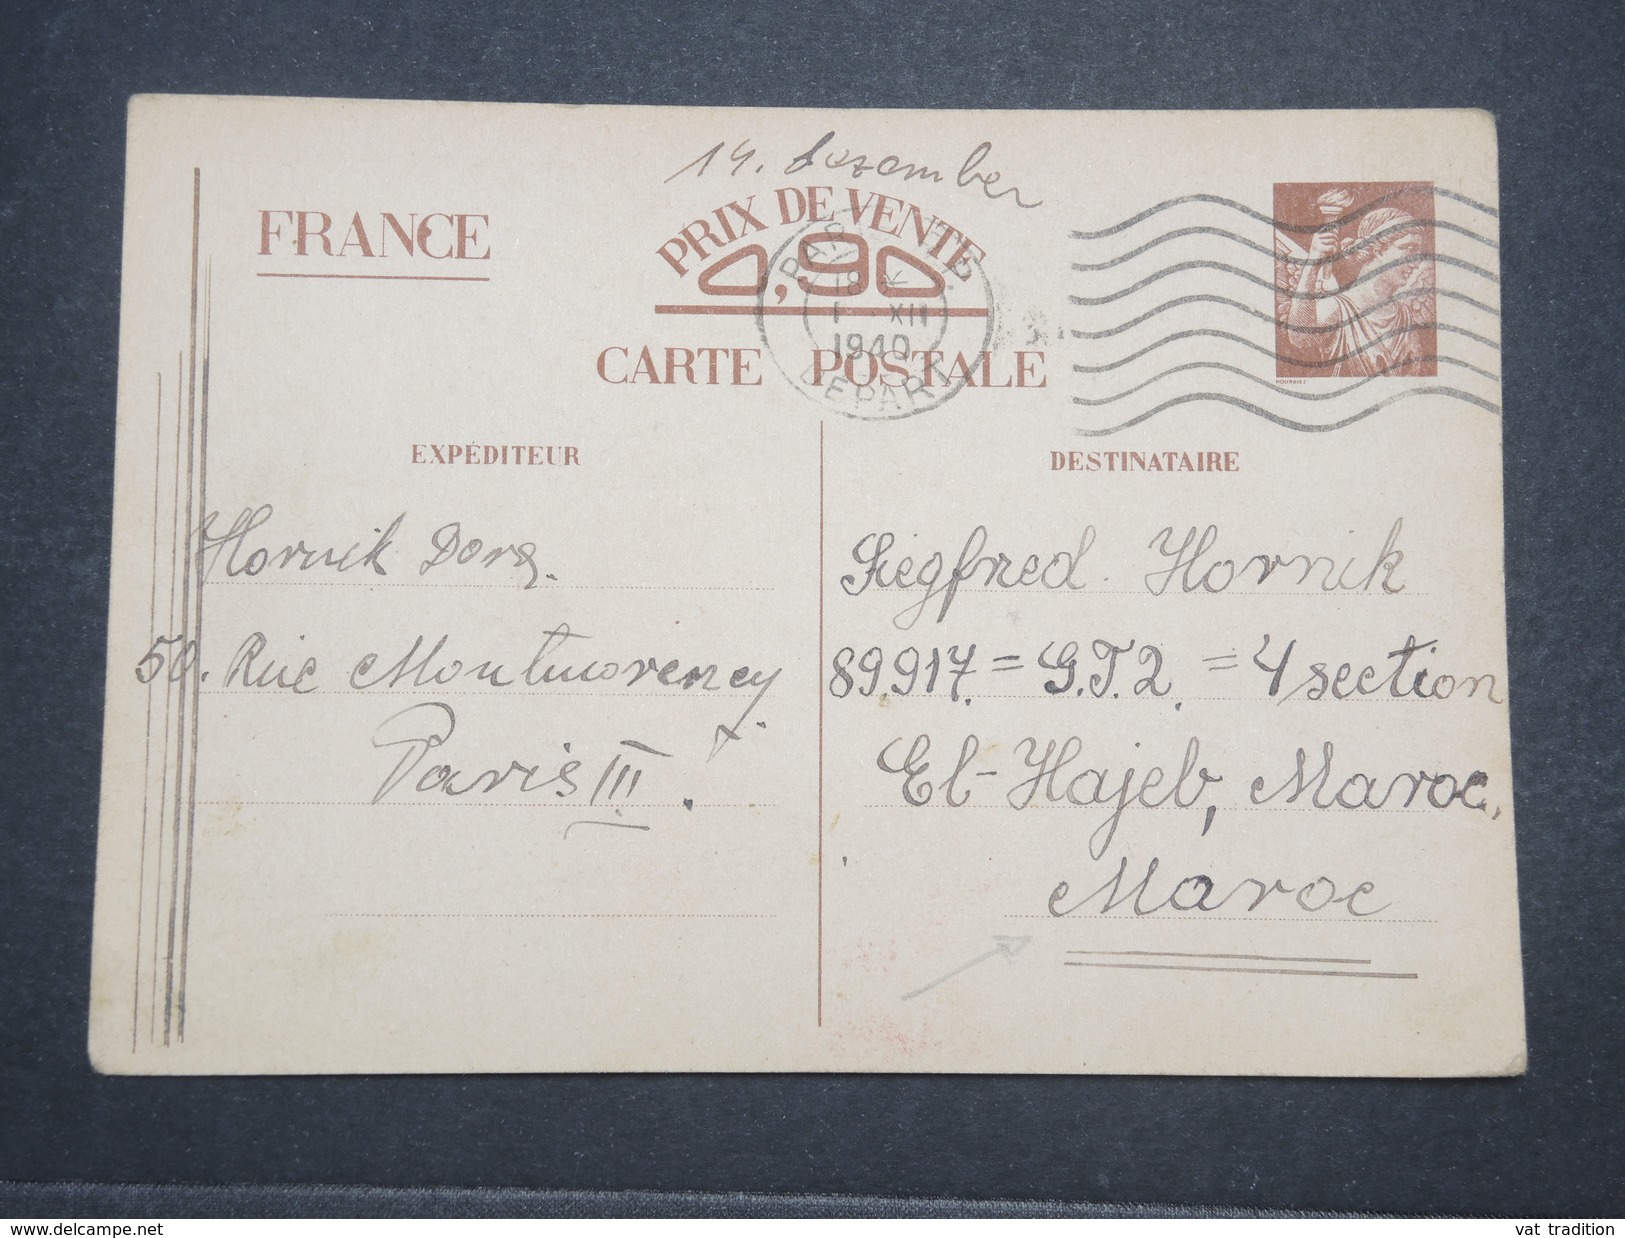 14. dezember
FRANCE
PRIX DE VENTE
0,90
PARIS
18
1 XII
1940
DEPART
CARTE POSTALE
EXPÉDITEUR
DESTINATAIRE
Hornik Dora.
50. Rue Montmorency
Paris III.
Siegfried Hornik
89.917. = G.T.2. = 4 section
El-Hajeb, Maroc,
Maroc
delcampe.net
vat tradition